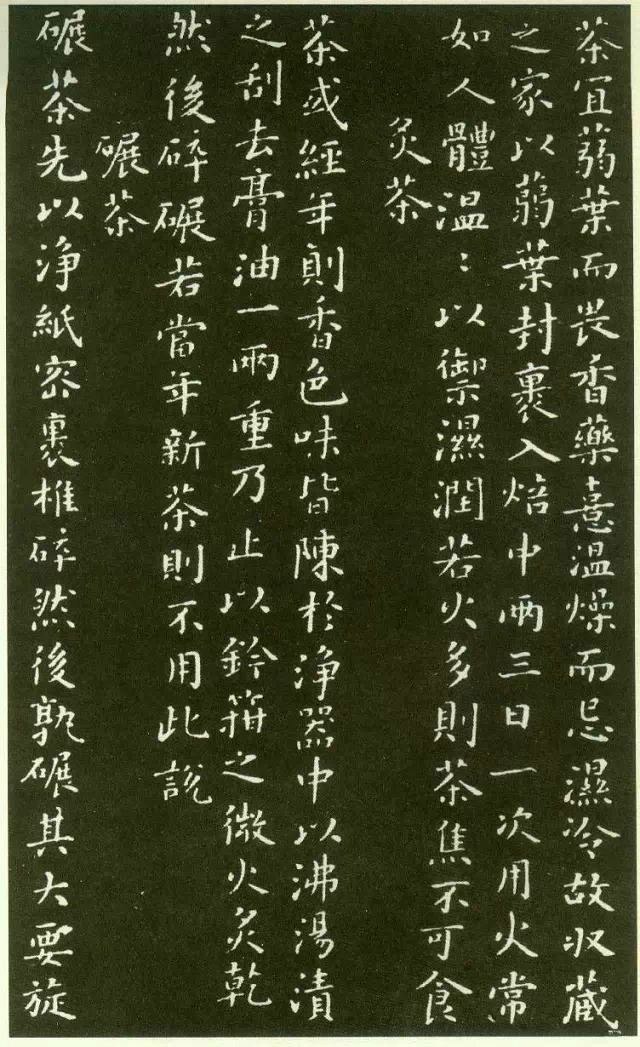 茶宜蒻葉而畏香藥憙温燥而忌濕冷故収蔵
之家以蒻葉封裹入焙中兩三日一次用火常
如人體温〻以禦濕潤若火多則茶焦不可食
炙茶
茶或經年則香色味皆陳於淨器中以沸湯漬
之刮去膏油一兩重乃止以鈐箝之微火炙乾
然後碎碾若當年新茶則不用此說
碾茶
碾茶先以淨紙密裹椎碎然後孰碾其大要旋